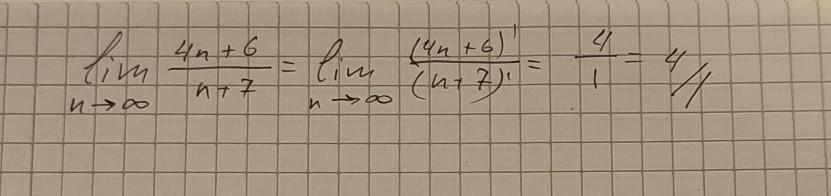 lim n→∞ (4n+6)/(n+7) = lim n→∞ (4n+6)'/(n+7)' = 4/1 = 4 //